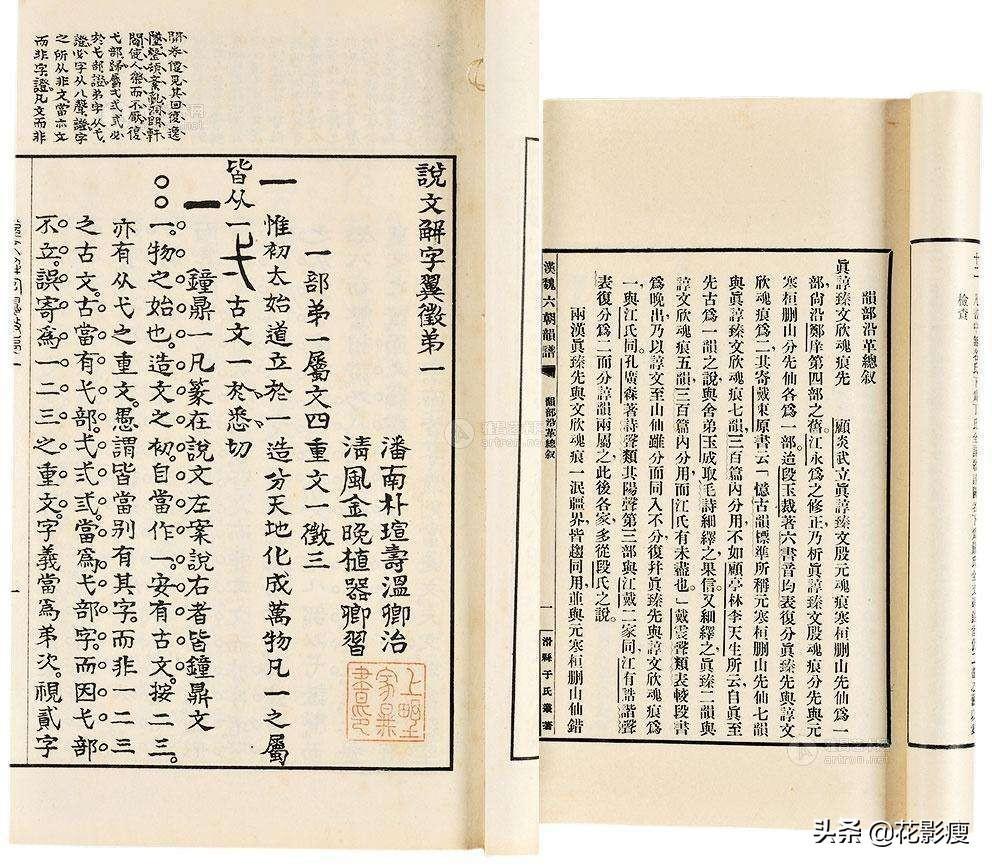 說文解字翼徵弟一
潘南朴瑄壽溫卿治
淸風金晚植器卿習
一部弟一屬文四重文一徵三
一
惟初太始道立於一造分天地化成萬物凡一之屬
皆从一弌古文一於悉切
一
鐘鼎一凡篆在說文左案說右者皆鐘鼎文
一物之始也造文之初自當作一安有古文按二三
亦有从弋之重文愚謂皆當别有其字而非一二三
之古文古當有弋部弌弍弎當爲弋部字而因弋部
不立誤寄爲一二三之重文字義當爲弟次視貳字
而非字證凡文而非
之所从非文當亦文
證必字从八聲證字
於弋部證弟字从弋
弋部歸屬弋弍弎必
閒使人樂而不厭復
開卷僅見其回復逸
韻部沿革總叙
眞諄臻文欣魂痕先
顧炎武立眞諄臻文殷元魂痕寒桓刪山先仙爲一
部尙沿鄭庠第四部之舊江永爲之修正乃析眞諄臻文殷魂痕分先與元
寒桓刪山分先仙各爲一部迨段玉裁著六書音均表復分眞臻先與諄文
欣魂痕爲二其寄戴東原書云「憶古韻標準所稱元寒桓刪山先仙七韻
與眞諄臻文欣魂痕七韻三百篇內分用不如顧亭林李天生所云自眞至
先古爲一韻之說與舍弟玉成取毛詩細繹之果信又細繹之眞臻二韻與
諄文欣魂痕五韻三百篇內分用而江氏有未盡也」戴震聲類表較段書
爲晚出乃以諄文至山仙雖分而同入不分復幷眞臻先與諄文欣魂痕爲
一與江氏同孔廣森著詩聲類其陽聲第三部與江戴二家同江有誥諧聲
表復分爲二而分諄韻兩屬之此後各家多從段氏之說
兩漢眞臻先與文欣魂痕一泯疆界皆趨同用並與元寒桓刪山仙錯
漢魏六朝韻譜
韻部沿革總叙
一
滑縣于氏叢著
檢查
雅昌艺术网
artron.net
头条 @花影瘦